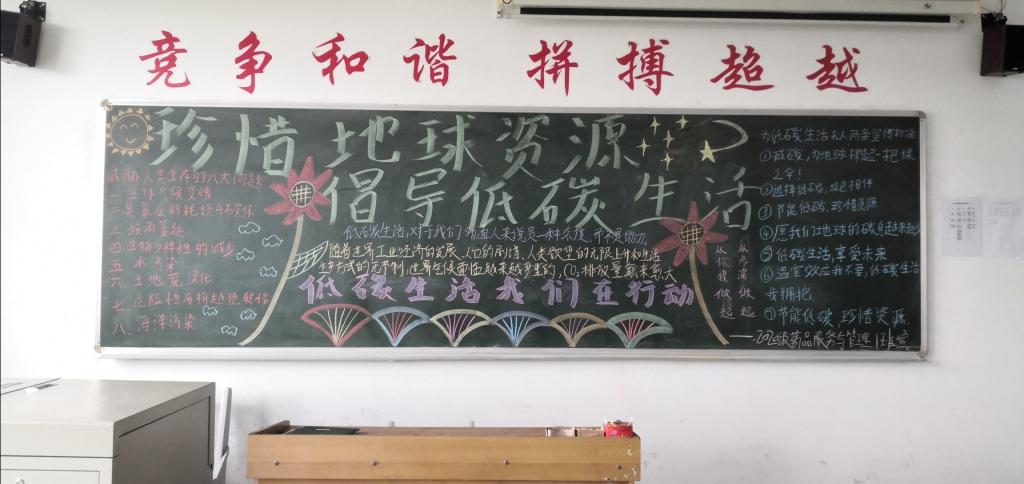 竞争和谐 拼搏超越
珍惜地球资源
倡导低碳生活
威胁人类生存的八大问题
一 全球气候变暖
二 臭氧层的耗损与破坏
三
四 生物多样性的减少
五 水污染
六 土地荒漠化
七 危险性废物越境转移
八 海洋污染
低碳生活,对于我们普通人来说是一种态度,而不是能力
随着世界工业经济的发展、人口的剧增、人类欲望的无限上升和生
产方式的无节制,世界气候面临越来越严重的,CO₂排放量越来越大
低碳生活我们在行动
从点滴做起
从你我做起
为低碳生活
①减碳,为地球撑起一把绿
之伞!
②选择低碳,绿色相伴
③节能低碳,珍惜资源
④愿我们地球的碳足迹越来越少
⑤低碳生活,享受未来
⑥温室效应我不要,低碳生活
我拥抱.
⑦节能低碳,珍惜资源
药品服务与管理